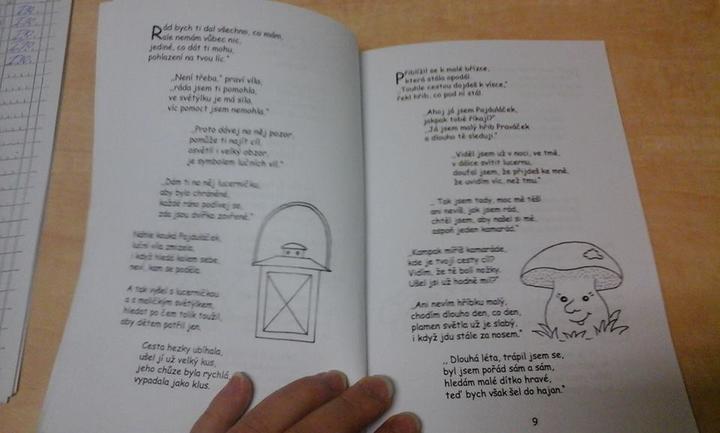 Rád bych ti dal všechno, co mám,
ale nemám vůbec nic,
jediné, co dát ti mohu,
pohlazení na tvou líc."
„Není třeba," praví víla,
„ráda jsem ti pomohla,
ve světýlku je má síla,
víc pomoct jsem nemohla."
„Proto dávej na něj pozor,
pomůže ti najít cíl,
osvětlí i velký obzor,
je symbolem lučních víl."
„Dám ti na něj lucerničku,
aby bylo chráněné,
každé ráno podívej se,
zda jsou dvířka zavřené."
Náhle kouká Pajduláček,
luční víla zmizela,
i když hledá kolem sebe,
neví, kam se poděla.
A tak vyšel s lucerničkou
a s maličkým světýlkem,
hledat po čem tolik toužil,
aby dětem patřil jen.
Cesta hezky ubíhala,
ušel jí už velký kus,
jeho chůze byla rychlá,
vypadala jako klus.
Přiblížil se k malé břízce,
která stála opodál.
„Touhle cestou dojdeš k vísce,"
řekl hřib, co pod ní stál.
„Ahoj já jsem Pajduláček,
jakpak tobě říkají?"
„Já jsem malý hřib Praváček
a dlouho tě sleduji."
„Viděl jsem už v noci, ve tmě,
v dálce svítit lucernu,
doufal jsem, že přijdeš ke mně,
že uvidím víc, než tmu."
„Tak jsem tady, moc mě těší
ani nevíš, jak jsem rád,
chtěl jsem, aby našel si mě,
aspoň jeden kamarád."
„Kampak míříš kamaráde,
kde je tvojí cesty cíl?
Vidím, že tě bolí nožky.
Ušel jsi už hodně mil?"
„Ani nevím hříbku malý,
chodím dlouho den, co den,
plamen světla už je slabý,
i když jdu stále za nosem."
„Dlouhá léta, trápil jsem se,
byl jsem pořád sám a sám,
hledám malé dítko hravé,
teď bych však šel do hajan."
9